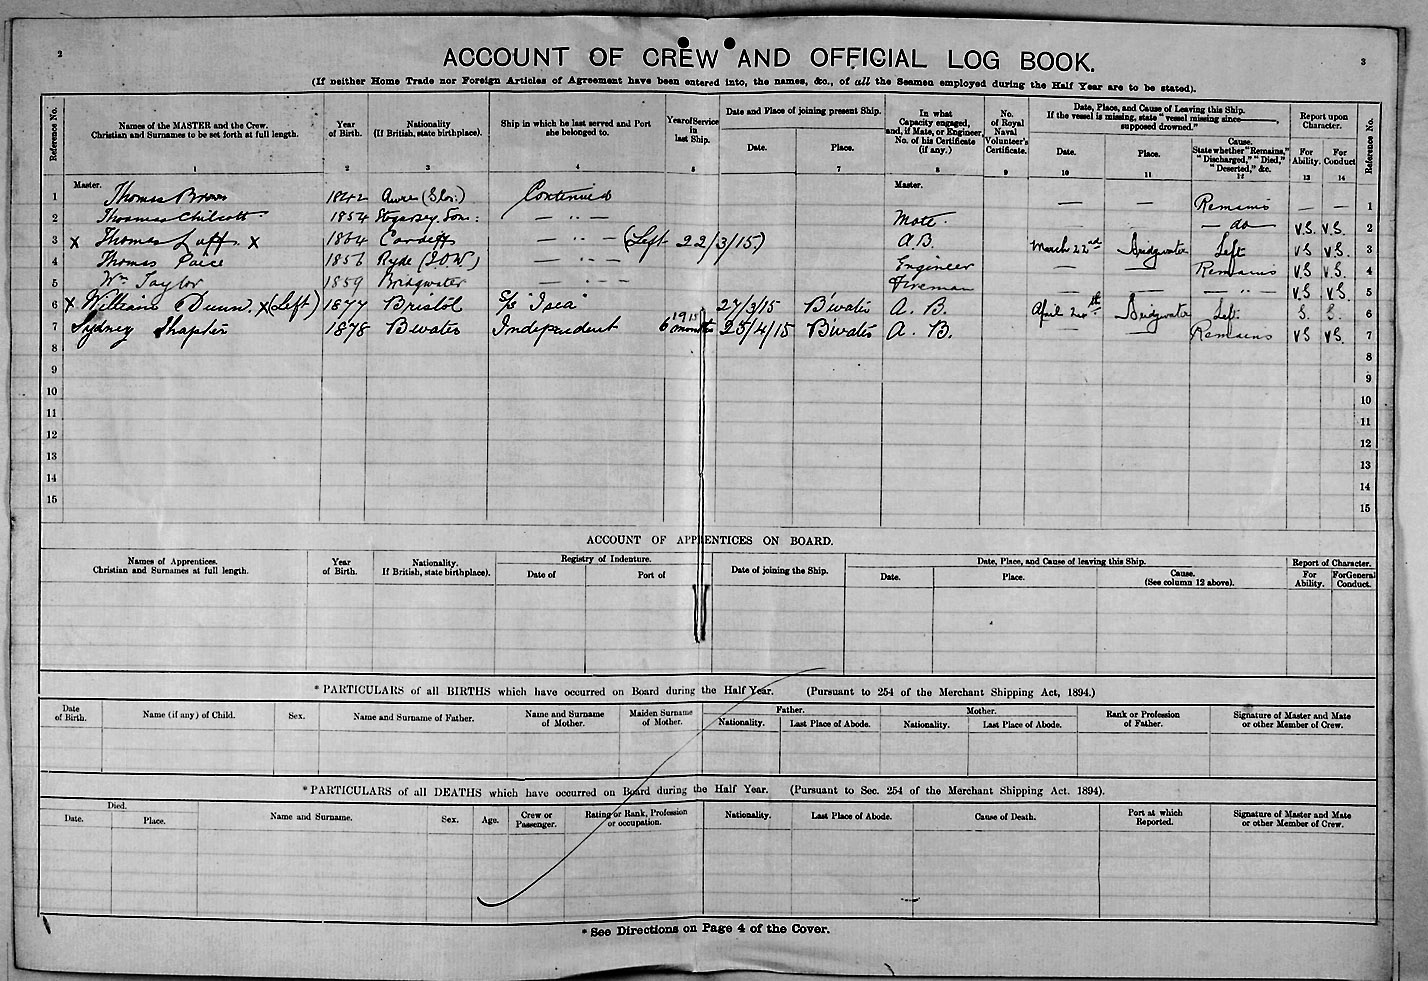 2
3
ACCOUNT OF CREW AND OFFICIAL LOG BOOK.
(If neither Home Trade nor Foreign Articles of Agreement have been entered into, the names, &c., of all the Seamen employed during the Half Year are to be stated).
Reference No.
Names of the MASTER and the Crew.
Christian and Surnames to be set forth at full length.
1
Year
of Birth.
2
Nationality
(If British, state birthplace).
3
Ship in which he last served and Port
she belonged to.
4
Year of Service
in
last Ship.
5
Date and Place of joining present Ship.
Date.
Place.
7
In what
Capacity engaged,
and, if Mate, or Engineer,
No. of his Certificate
(if any.)
8
No.
of Royal
Naval
Volunteer's
Certificate.
9
Date, Place, and Cause of Leaving this Ship.
If the vessel is missing, state "vessel missing since
supposed drowned."
Date.
10
Place.
11
Cause.
State whether "Remains,"
"Discharged," "Died,"
"Deserted," &c.
12
Report upon
Character.
For
Ability.
13
For
Conduct
14
Reference No.
1 Master. Thomas Brown 1842 Awre (Glos:) Continued Master. — — Remains — — 1
2 Thomas Chilcott 1854 Stogursey. Som: — " — Mate. — — do — V.S. V.S. 2
3 X Thomas Luff X 1864 Cardiff — " — (Left 22/3/15) A.B. March 22nd Bridgwater Left VS VS. 3
4 Thomas Paice 1856 Ryde (I.O.W) — " — Engineer — — Remains VS V.S. 4
5 Wm Taylor 1859 Bridgwater — " — Fireman — — — " — V.S VS. 5
6 X William Dunn. X (Left) 1877 Bristol S/s "Isca" 1915 27/3/15 B'water A. B. April 24th Bridgwater Left S. G. 6
7 Sydney Shapter 1878 B'water Independent 6 months 25/4/15 B'water A. B. — — Remains VS VS. 7
8 8
9 9
10 10
11 11
12 12
13 13
14 14
15 15
ACCOUNT OF APPRENTICES ON BOARD.
Names of Apprentices.
Christian and Surnames at full length.
Year
of Birth.
Nationality.
If British, state birthplace).
Registry of Indenture.
Date of
Port of
Date of joining the Ship.
Date, Place, and Cause of leaving this Ship.
Date.
Place.
Cause.
(See column 12 above).
Report of Character.
For
Ability.
For General
Conduct.
*PARTICULARS of all BIRTHS which have occurred on Board during the Half Year. (Pursuant to 254 of the Merchant Shipping Act, 1894.)
Date
of Birth.
Name (if any) of Child.
Sex.
Name and Surname of Father.
Name and Surname
of Mother.
Maiden Surname
of Mother.
Father.
Nationality.
Last Place of Abode.
Mother.
Nationality.
Last Place of Abode.
Rank or Profession
of Father.
Signature of Master and Mate
or other Member of Crew.
*PARTICULARS of all DEATHS which have occurred on Board during the Half Year. (Pursuant to Sec. 254 of the Merchant Shipping Act. 1894).
Died.
Date.
Place.
Name and Surname.
Sex.
Age.
Crew or
Passenger.
Rating or Rank, Profession
or occupation.
Nationality.
Last Place of Abode.
Cause of Death.
Port at which
Reported.
Signature of Master and Mate
or other Member of Crew.
*See Directions on Page 4 of the Cover.